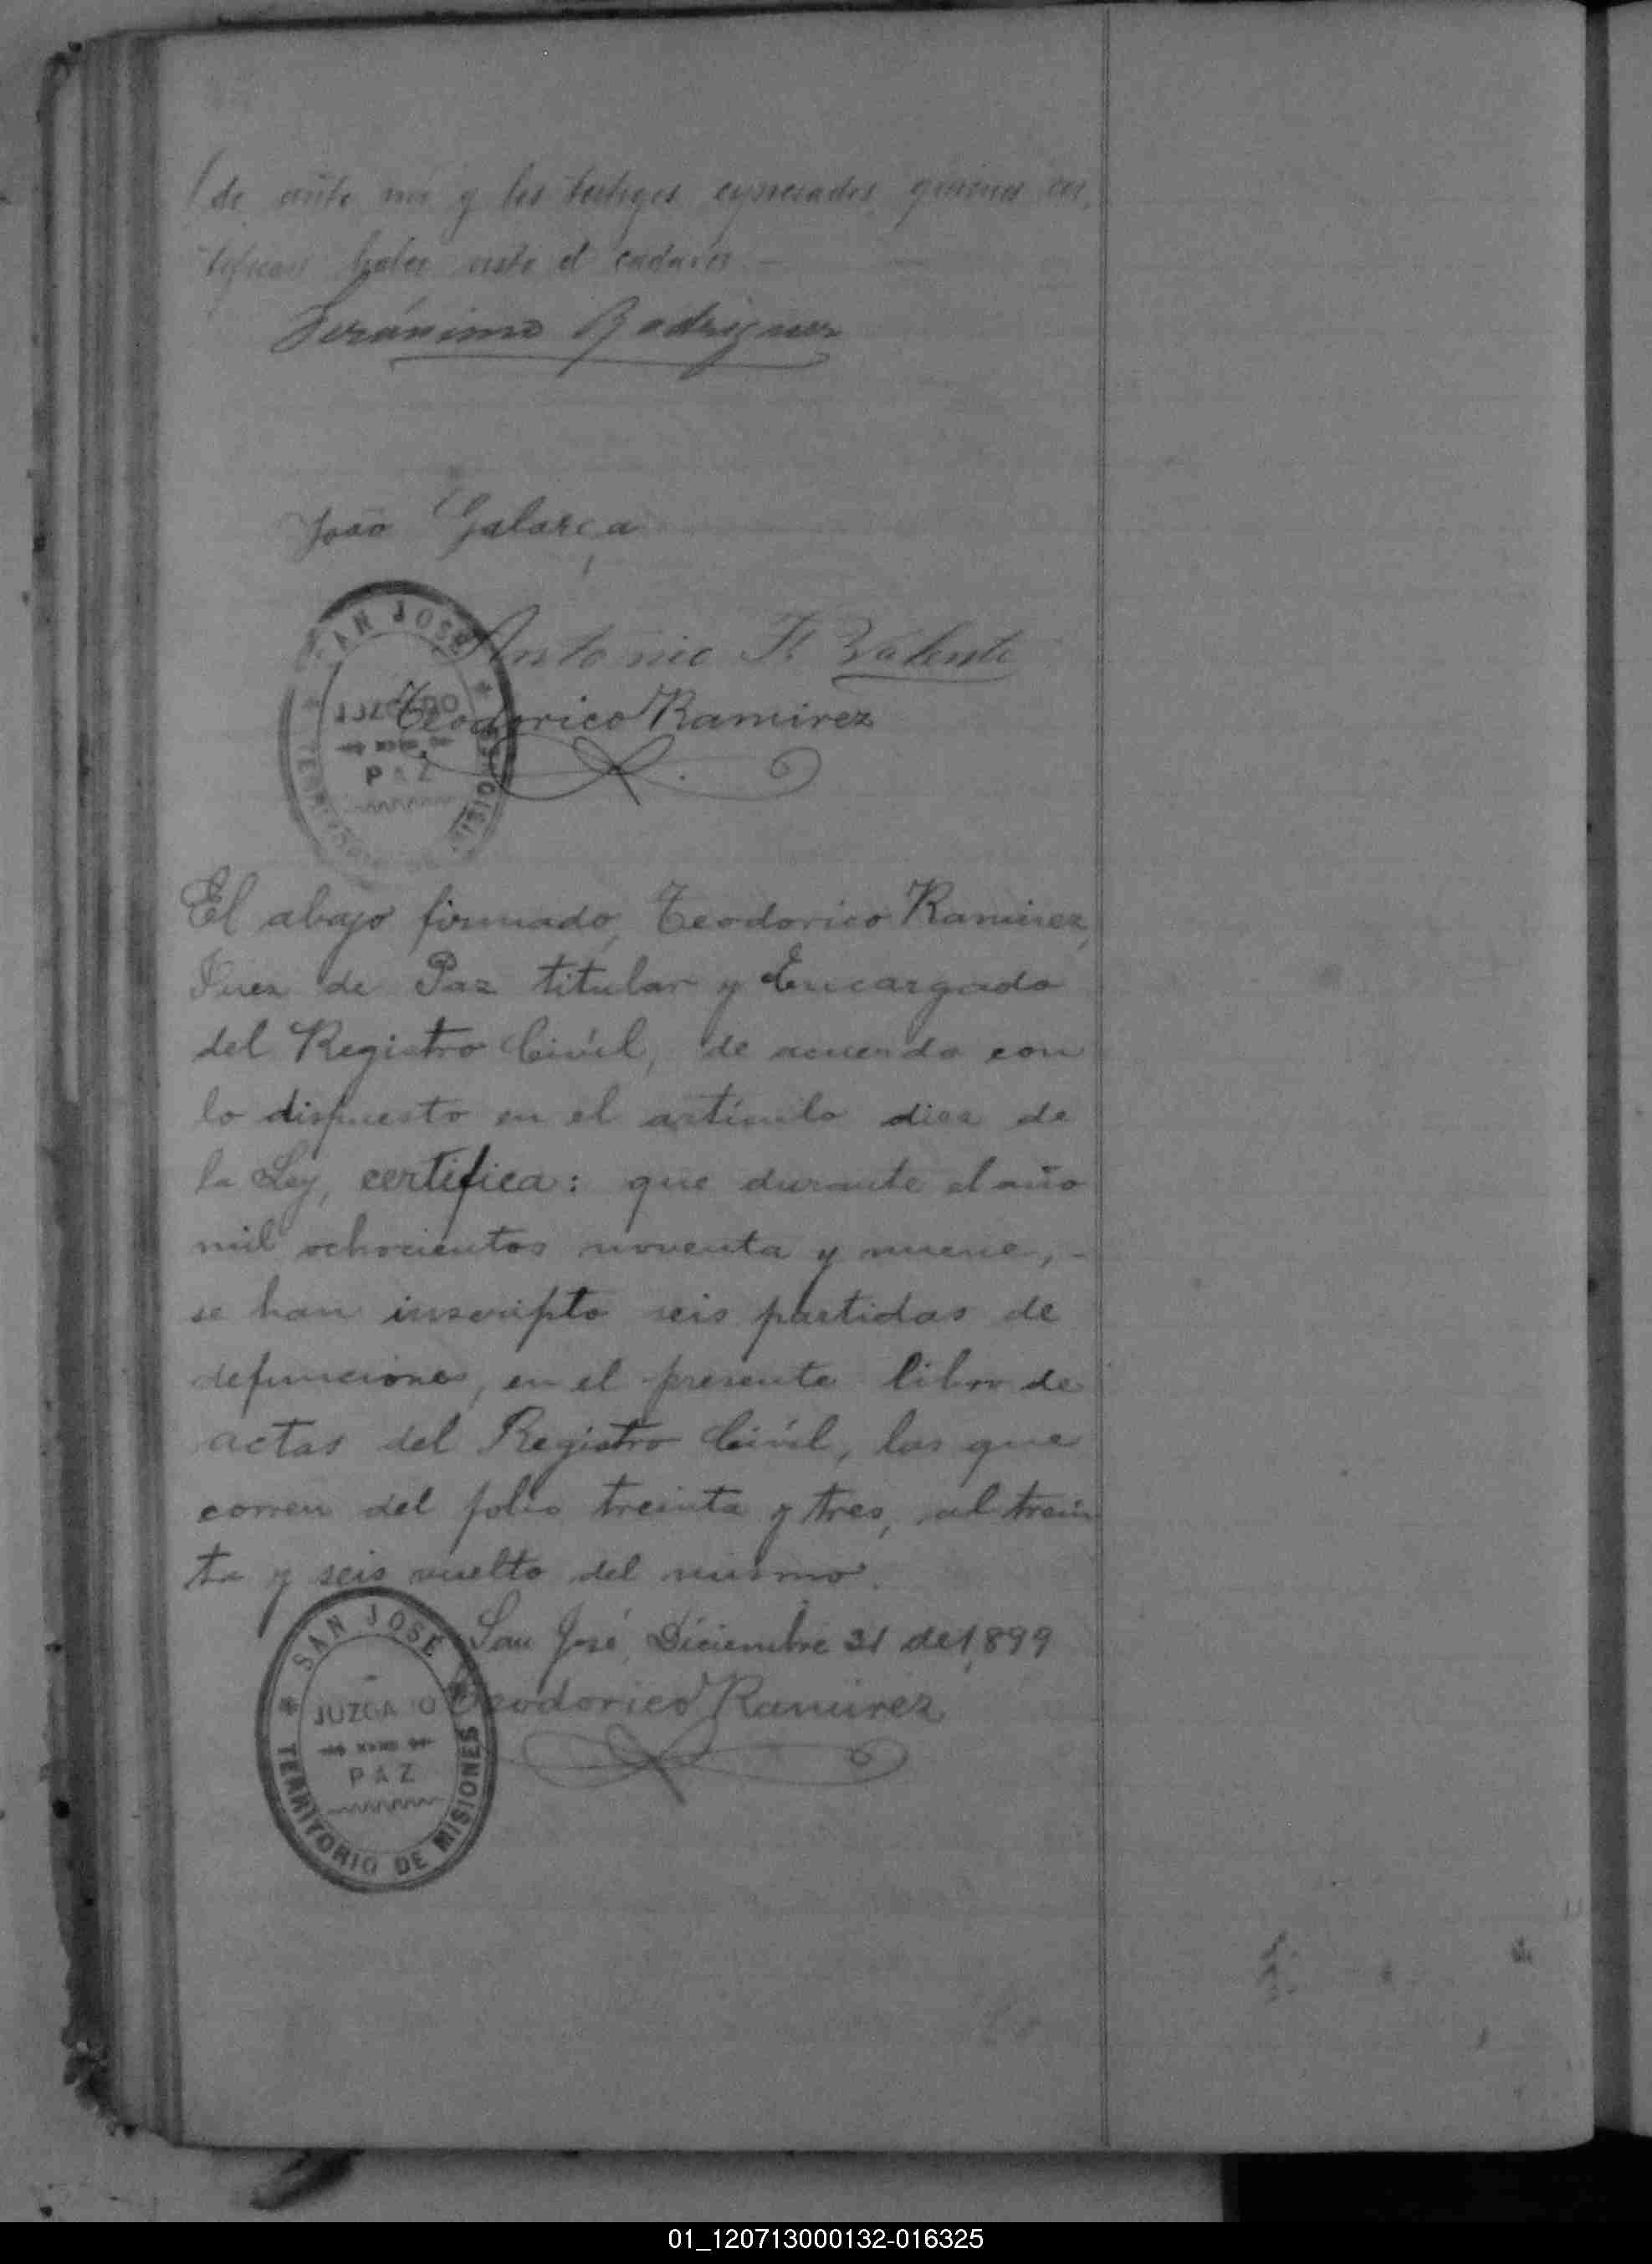 de ante mi y los testigos espresados quienes cer,
tifican haber visto el cadaver —
Geránimo Rodriguez
João Galarça
SAN JOSE
Antonio F. Valente
JUZGADO
Teodorico Ramirez
PAZ
El abajo firmado, Teodorico Ramirez,
Juez de Paz titular y Encargado
del Registro Civil, de acuerdo con
lo dispuesto en el artículo diez de
la Ley, certifica: que durante el año
mil ochocientos noventa y nueve, -
se han inscripto seis partidas de
defunciones, en el presente libro de
actas del Registro Civil, las que
corren del folio treinta y tres, al trein
ta y seis vuelto del mismo.
San José, Diciembre 31 de 1,899
Teodorico Ramirez
SAN JOSE
JUZGADO
PAZ
TERRITORIO DE MISIONES
01_120713000132-016325